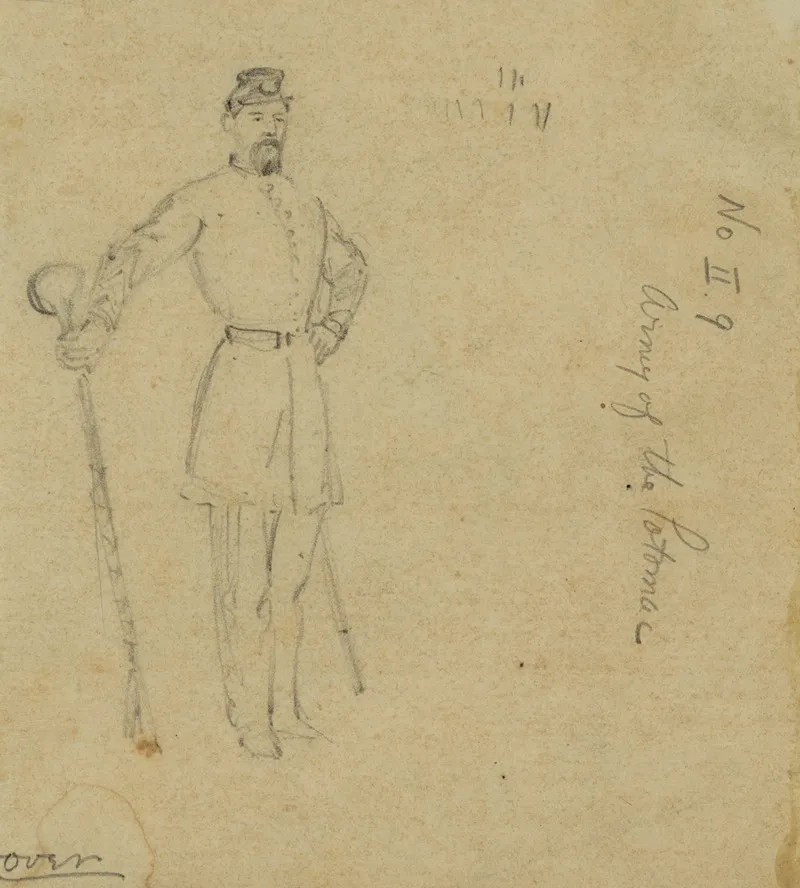 No II. 9
Army of the Potomac
over